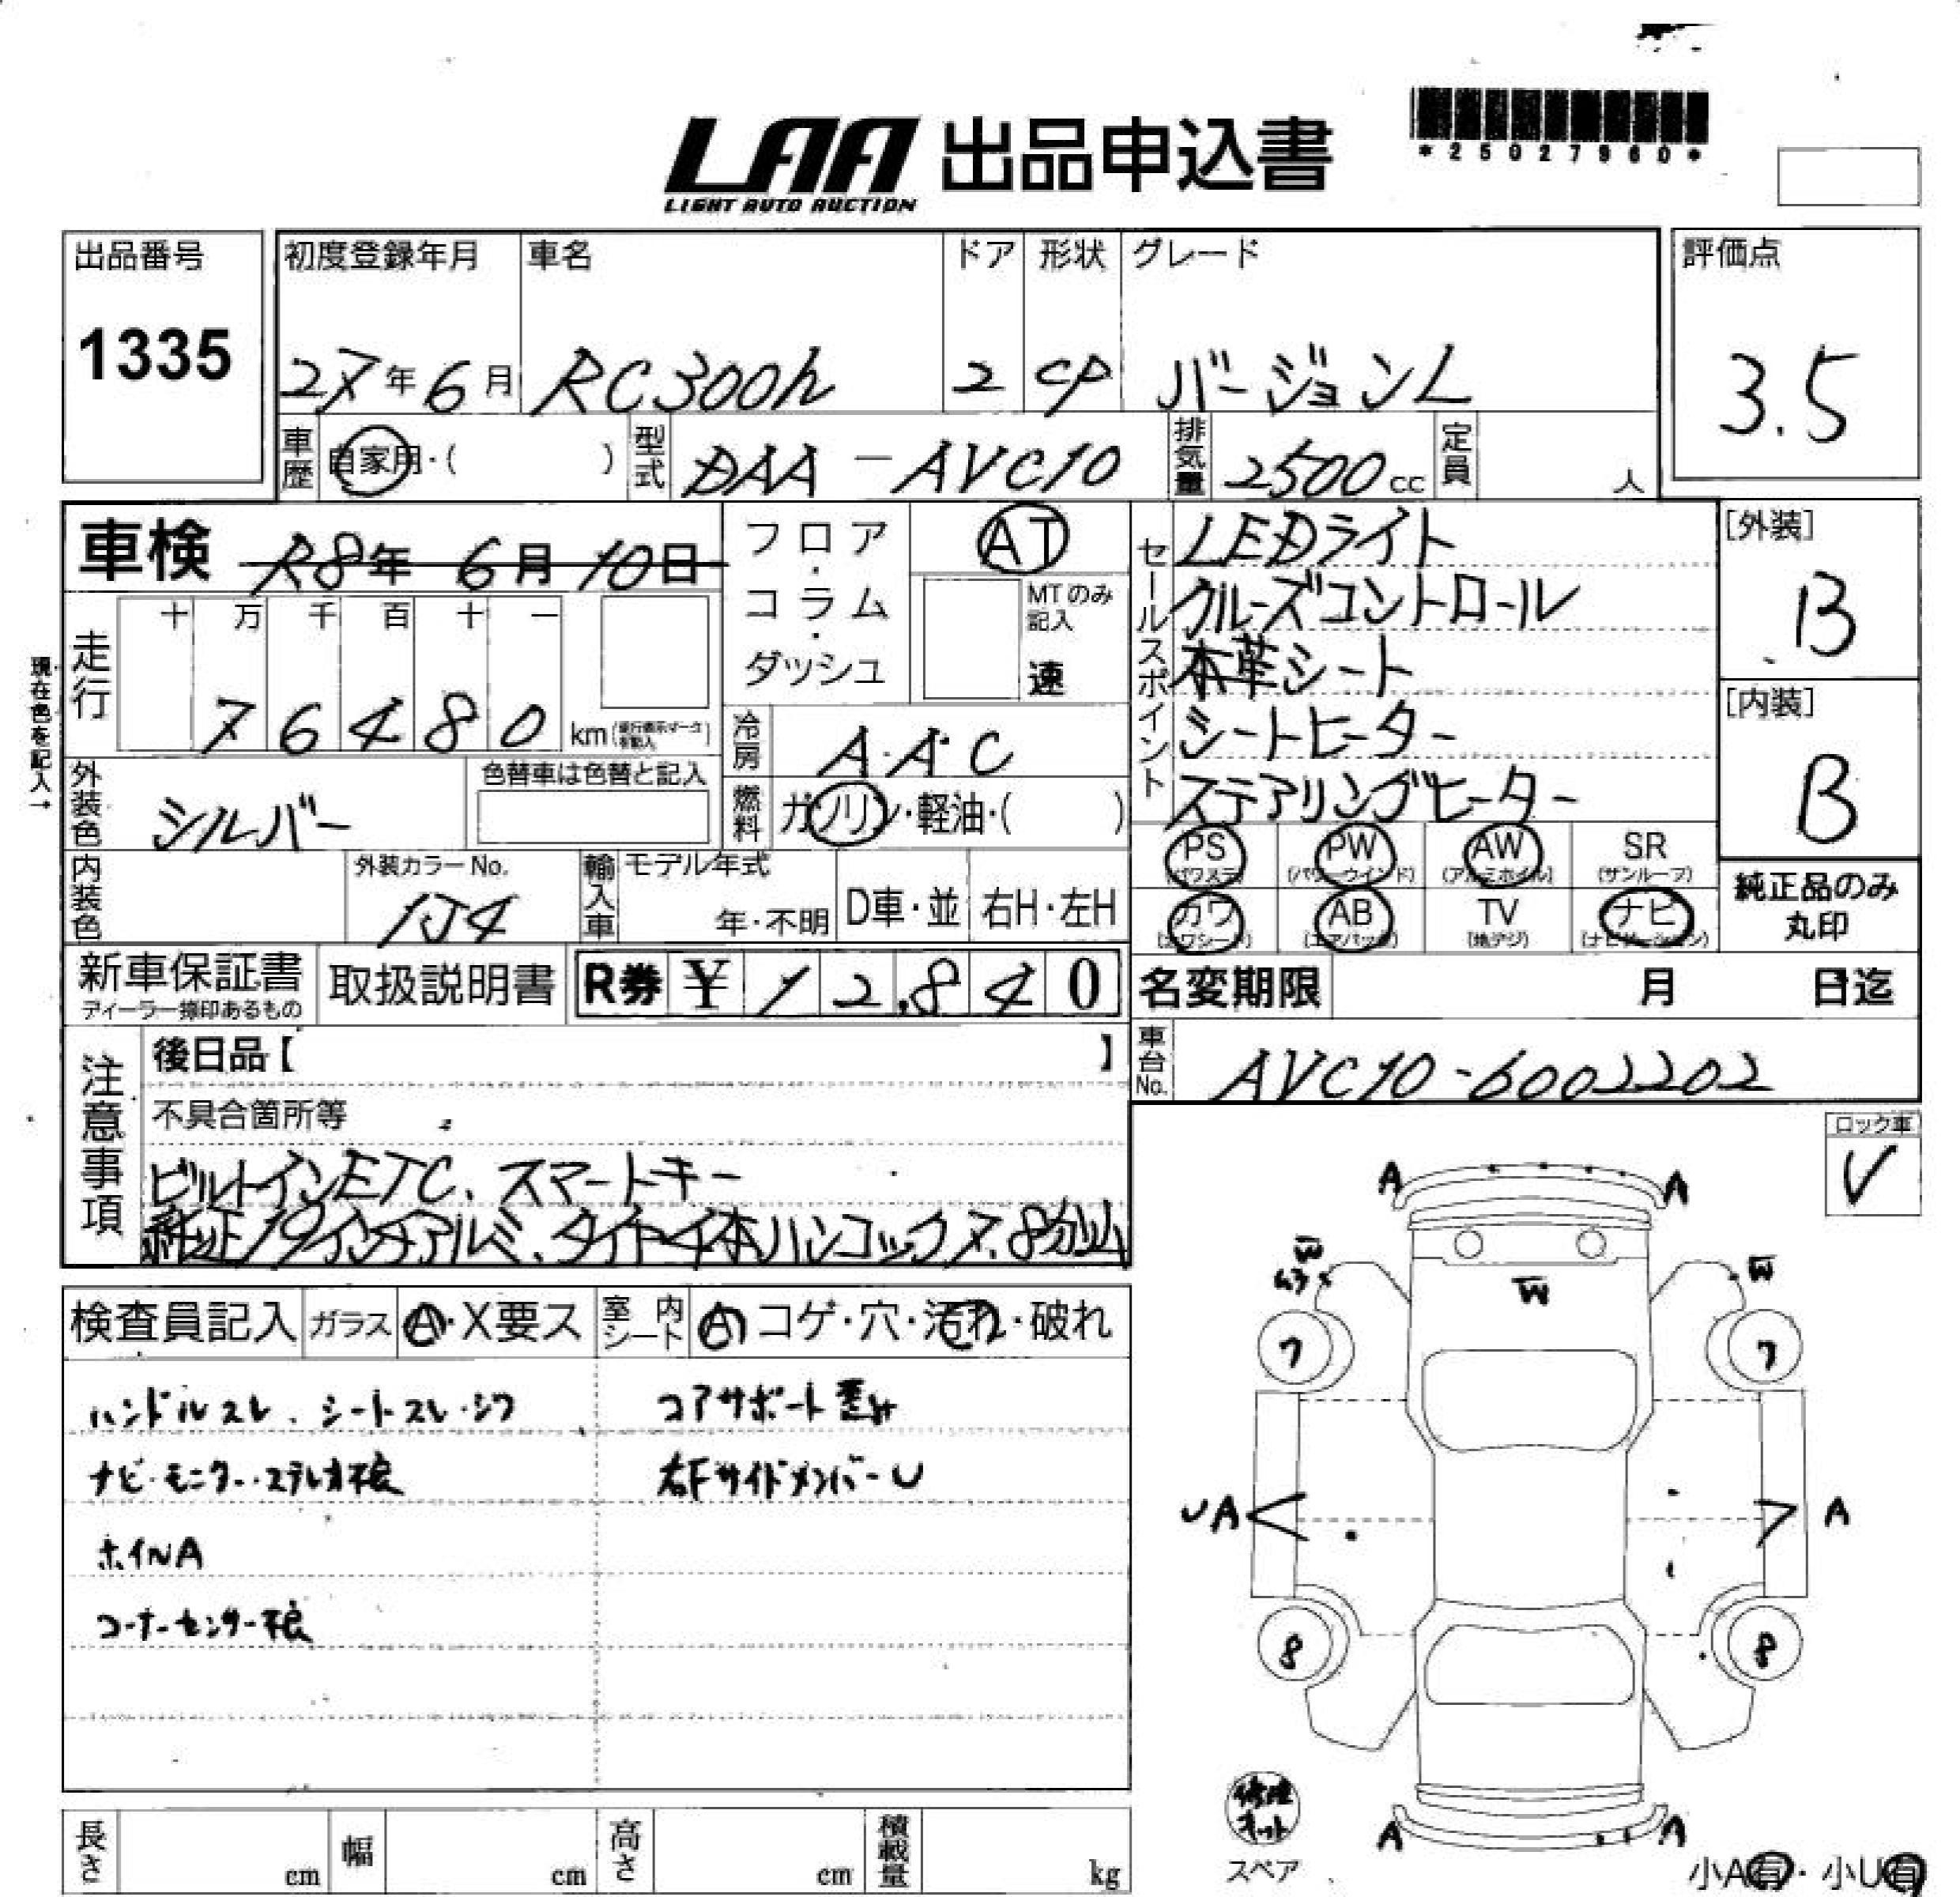 *25027960*
LAA 出品申込書
LIGHT AUTO AUCTION
出品番号 初度登録年月 車名 ドア 形状 グレード 評価点
1335 27年6月 RC300h 2 CP バージョンL 3.5
車歴 自家用・( ) 型式 DAA-AVC10 排気量 2500cc 定員 人
車検 R8年 6月 10日
フロア・コラム・ダッシュ AT
MTのみ記入 速
セールスポイント
LEDライト
クルーズコントロール
本革シート
シートヒーター
ステアリングヒーター
[外装]
B
[内装]
B
現在色を記入→
走行 十 万 千 百 十 一
76480 km
冷房 A.A.C
外装色 シルバー 色替車は色替と記入
燃料 ガソリン・軽油・( )
PS PW AW SR
(パワステ) (パワーウインド) (アルミホイル) (サンルーフ)
カワ AB TV ナビ
(カワシート) (エアバッグ) (地デジ) (ナビゲーション)
純正品のみ
丸印
内装色 外装カラーNo. 1J4 輸入車 モデル年式 年・不明 D車・並 右H・左H
新車保証書 取扱説明書 R券 ¥12,840
ディーラー捺印あるもの
名変期限 月 日迄
車台No. AVC10-6002202
注意事項
後日品【 】
不具合箇所等
ビルトインETC、スマートキー
純正19インチアルミ、タイヤ4本ハンコック7.8分山
ロック車
✓
検査員記入 ガラス A・X要ス 室内シート A コゲ・穴・汚れ・破れ
ハンドルスレ、シートスレ・シワ コアサポート歪み
ナビ・モニター・ステレオ不良 右FサイドメンバーU
ホイルA
コーナーセンサー不良
A A
W W
W
7 7
UA A
8 8
A A
修理キット
スペア
小A有・小U有
長さ cm 幅 cm 高さ cm 積載量 kg